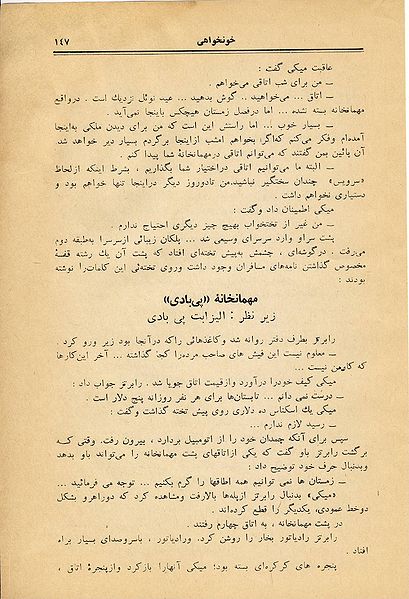 خونخواهی ۱۴۷
عاقبت میکی گفت :
ـ من برای شب اتاقی می‌خواهم .
ـ اتاق ... می‌خواهید .. گوش بدهید ... عید نوئل نزدیك است . درواقع
مهمانخانه بسته نشده ... اما درفصل زمستان هیچکس باینجا نمی‌آید .
ـ بسیار خوب ... اما راستش این است که من برای دیدن ملکی به‌اینجا
آمده‌ام وفکر می‌کنم که‌اگر بخواهم امشب ازاینجا برگردم بسیار دیر خواهد شد.
آن پائین بمن گفتند که می‌توانم اتاقی درمهمانخانهٔ شما پیدا کنم .
ـ البته ما می‌توانیم اتاقی دراختیار شما بگذاریم ، بشرط اینکه ازلحاظ
«سرویس» چندان سختگیر نباشید.من تادوروز دیگر دراینجا تنها خواهم بود و
دستیاری نخواهم داشت .
میکی اطمینان داد وگفت :
ـ من غیر از تختخواب بهیچ چیز دیگری احتیاج ندارم .
پشت سراو وارد سرسرای وسیعی شد .. پلکان زیبائی ازسرسرا به‌طبقه دوم
می‌رفت . درگوشه‌ای ، چشمش به‌پیش تخته‌ای افتاد که پشت آن یك رشته قفسهٔ
مخصوص گذاشتن نامه‌های مسافران وجود داشت وروی تخته‌ئی این کلمات‌را نوشته
بودند :
مهمانخانهٔ «پی‌بادی»
زیر نظر : الیزابت پی بادی
رابرتز بطرف دفتر روانه شد وکاغذهائی راکه درآنجا بود زیر ورو کرد .
ـ معلوم نیست این فیش های صاحب مرده‌را کجا گذاشته ... آخر این‌کارها
که کارمن نیست ...
میکی کیف خودرا درآورد وازقیمت اتاق جویا شد . رابرتز جواب داد :
ـ درست نمی دانم ... تابستان‌ها برای هر نفر روزانه پنج دلار است .
میکی یك اسکناس ده دلاری روی پیش تخته گذاشت وگفت :
ـ رسید لازم ندارم ...
سپس برای آنکه چمدان خود را از اتومبیل بردارد ، بیرون رفت. وقتی کــه
برگشت رابرتز باو گفت که یکی ازاتاقهای پشت مهمانخانه را می‌تواند باو بدهد
وبدنبال حرف خود توضیح داد :
ـ زمستان ها نمی توانیم همه اطاقها را گرم بکنیم ... توجه می فرمائید ...
«میکی» بدنبال رابرتز ازپله‌ها بالارفت ومشاهده کرد که دوراهرو بشکل
دوخط عمودی، یکدیگر را قطع کرده‌اند.
در پشت مهمانخانه ، به اتاق چهارم رفتند .
رابرتز رادیاتور بخار را روشن کرد. ورادیاتور ، باسروصدای بسیار براه
افتاد .
پنجره های کرکره‌ای بسته بود؛ میکی آنهارا بازکرد وازپنجرهٔ اتاق ،